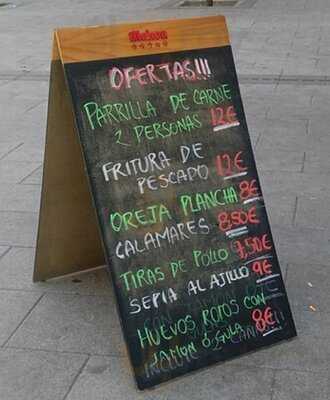 Mahou
OFERTAS!!!
PARRILLA DE CARNE
2 PERSONAS 12€
FRITURA DE
PESCADO 12€
OREJA PLANCHA 8€
CALAMARES 8,50€
TIRAS DE POLLO 7,50€
SEPIA AL AJILLO 9€
HUEVOS ROTOS CON
JAMON Ó GULA 8€